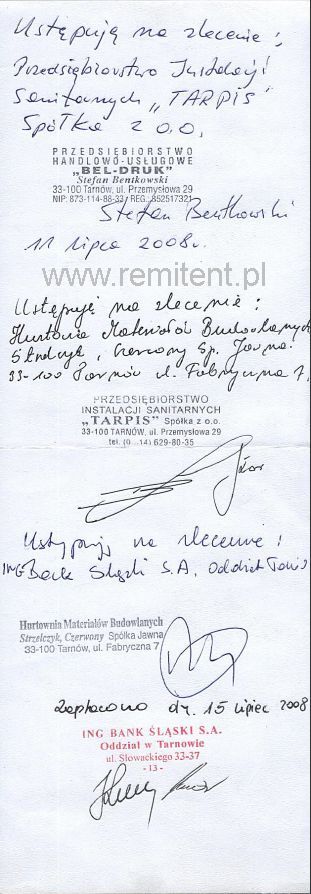 Ustępują na zlecenie:
Przedsiębiorstwo Instalacji
Sanitarnych „TARPIS"
Spółka z o.o.
PRZEDSIĘBIORSTWO
HANDLOWO-USŁUGOWE
„BEL-DRUK"
Stefan Bentkowski
33-100 Tarnów, ul. Przemysłowa 29
NIP: 873-114-88-33 REG. 852517321
Stefan Bentkowski
11 lipca 2008r.
www.remitent.pl
Ustępuję na zlecenie:
Hurtownia Materiałów Budowlanych
Strelczyk, Czerwony Sp. Jawna
33-100 Tarnów ul. Fabryczna 7,
PRZEDSIĘBIORSTWO
INSTALACJI SANITARNYCH
„TARPIS" Spółka z o.o.
33-100 TARNÓW, ul. Przemysłowa 29
tel. (0...14) 629-80-35
Ustępuję na zlecenie:
ING Bank Śląski S.A. Oddział
Hurtownia Materiałów Budowlanych
Strzelczyk, Czerwony Spółka Jawna
33-100 Tarnów, ul. Fabryczna 7
Zapłacono dn. 15 lipiec 2008
ING BANK ŚLĄSKI S.A.
Oddział w Tarnowie
ul. Słowackiego 33-37
- 13 -